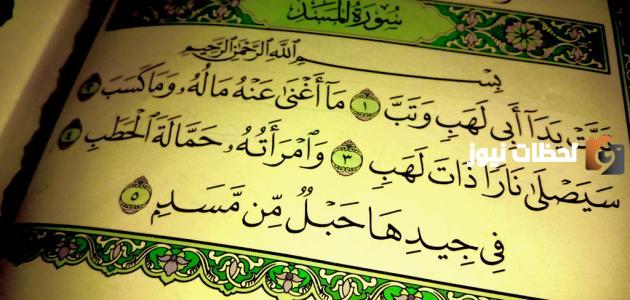 سُورَةُ المَسَدِ
بِسْمِ اللَّهِ الرَّحْمَٰنِ الرَّحِيمِ
تَبَّتْ يَدَآ أَبِي لَهَبٍ وَتَبَّ ١ مَآ أَغْنَىٰ عَنْهُ مَالُهُۥ وَمَا كَسَبَ ٢
سَيَصْلَىٰ نَارًا ذَاتَ لَهَبٍ ٣ وَٱمْرَأَتُهُۥ حَمَّالَةَ ٱلْحَطَبِ ٤
فِي جِيدِهَا حَبْلٌ مِّن مَّسَدٍۭ ٥
لحظات نيوز